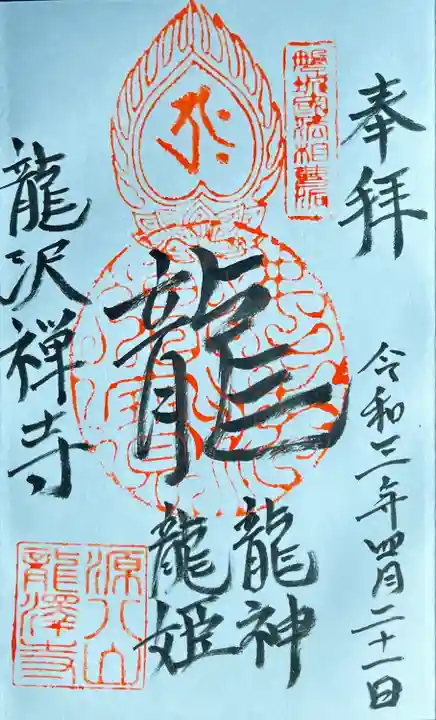 奉拝
令和三年四月二十一日
龍
龍神
龍姫
龍沢禅寺
源八山
龍澤寺